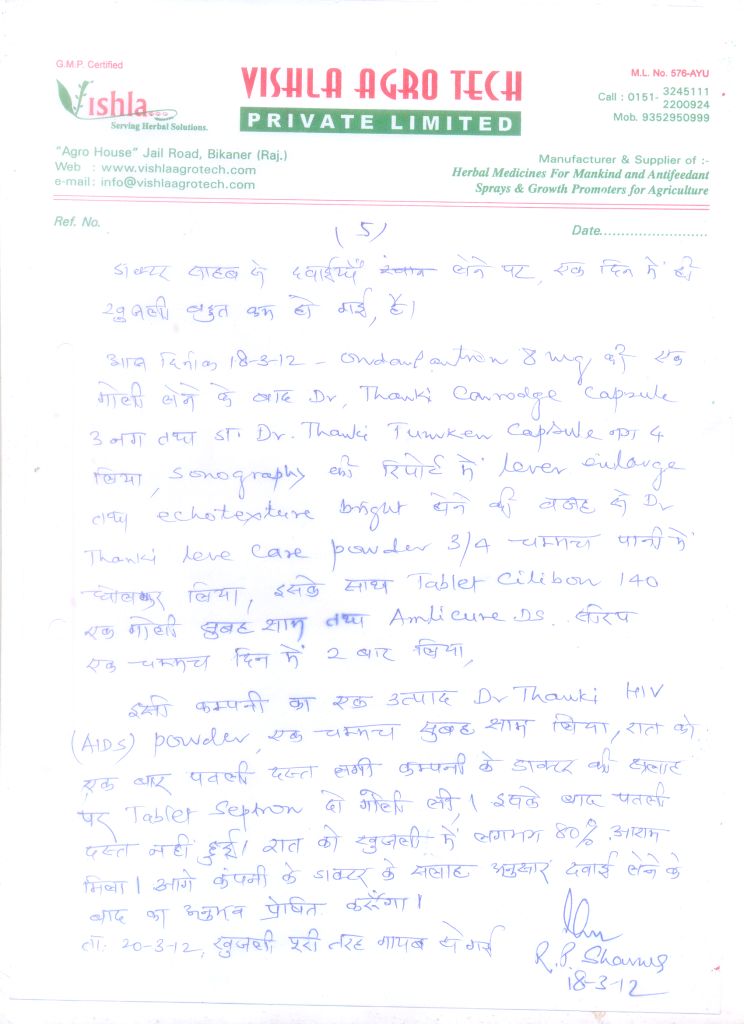 G.M.P. Certified
Vishla
Serving Herbal Solutions.
VISHLA AGRO TECH
PRIVATE LIMITED
M.L. No. 576-AYU
Call : 0151- 3245111
2200924
Mob. 9352950999
"Agro House" Jail Road, Bikaner (Raj.)
Web : www.vishlaagrotech.com
e-mail : info@vishlaagrotech.com
Manufacturer & Supplier of :-
Herbal Medicines For Mankind and Antifeedant
Sprays & Growth Promoters for Agriculture
Ref. No.
(5)
Date........................
डाक्टर साहब से दवाईयाँ लेने पर, एक दिन में ही
खुजली बहुत कम हो गई, है।
आज दिनांक 18-3-12 - 8 mg की एक
गोली लेने के बाद Dr, Thanki Capsule
3 नग तथा डा. Dr. Thanki Capsule नग 4
लिया, sonography की रिपोर्ट में lever enlarge
तथा echotexture bright होने की वजह से Dr
Thanki leve Care powder 3/4 चम्मच पानी में
घोलकर लिया, इसके साथ Tablet Cilibon 140
एक गोली सुबह शाम तथा Amlicure DS. सीरप
एक चम्मच दिन में 2 बार लिया,
इसी कम्पनी का एक उत्पाद Dr Thanki HIV
(AIDS) powder, एक चम्मच सुबह शाम लिया, रात को
एक बार पतली दस्त लगी कम्पनी के डाक्टर की सलाह
पर Tablet Septron दो गोली ली, । इसके बाद पतली
दस्त नहीं हुई। रात को खुजली में लगभग 80% आराम
मिला। आगे कंपनी के डाक्टर के सलाह अनुसार दवाई लेने के
बाद का अनुभव प्रेषित करूँगा।
ता. 20-3-12, खुजली पूरी तरह गायब हो गई
R. P. Sharma
18-3-12